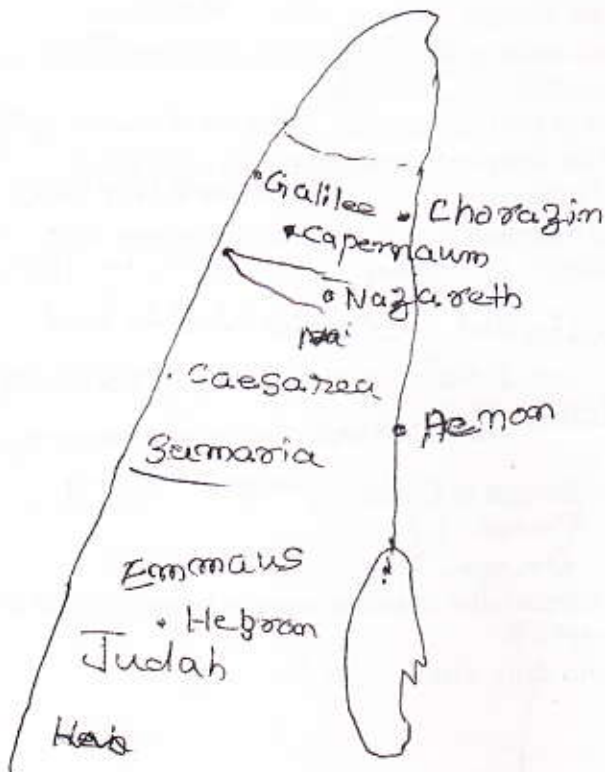 Galilee
Chorazin
Capernaum
Nazareth
Caesarea
Aenon
Samaria
Emmaus
Hebron
Judah